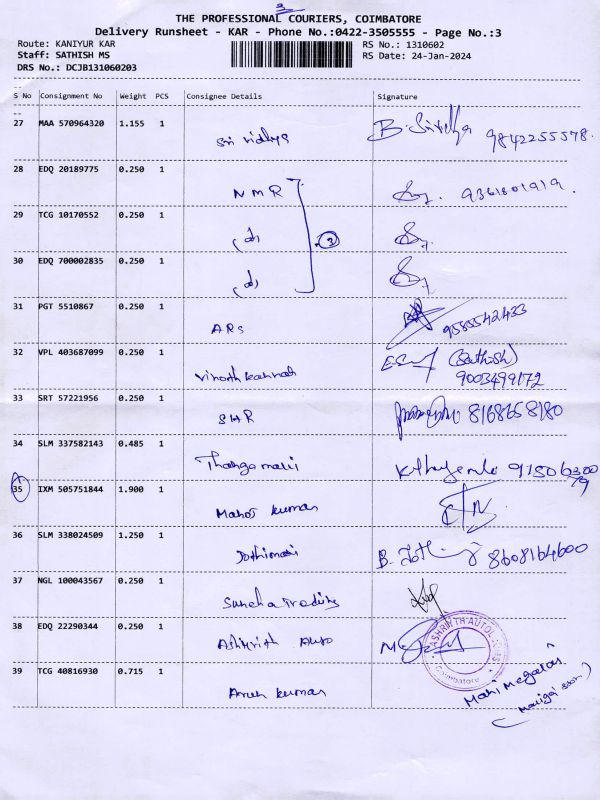 3
THE PROFESSIONAL COURIERS, COIMBATORE
Delivery Runsheet - KAR - Phone No.:0422-3505555 - Page No.:3
Route: KANIYUR KAR RS No.: 1310602
Staff: SATHISH MS RS Date: 24-Jan-2024
DRS No.: DCJB131060203
S No Consignment No Weight PCS Consignee Details Signature
27 MAA 570964320 1.155 1 Sri Vidhya B. Srividhya 9842255578.
28 EDQ 20189775 0.250 1 NMR 9361801919.
29 TCG 10170552 0.250 1 (do) 3
30 EDQ 700002835 0.250 1 (do)
31 PGT 5510867 0.250 1 ARS 9585542433
32 VPL 403687099 0.250 1 Vinoth kannah (Sathish)
9003499172
33 SRT 57221956 0.250 1 8168658180
34 SLM 337582143 0.485 1 Thangamani
35 IXM 505751844 1.900 1 Manoj kumar
36 SLM 338024509 1.250 1 Jothimani B. Jothi 8608164600
37 NGL 100043567 0.250 1 Sureha Trading
38 EDQ 22290344 0.250 1 Ashwrith Auto
ASHRWTH AUTOL
Coimbatore
39 TCG 40816930 0.715 1 Arun kumar